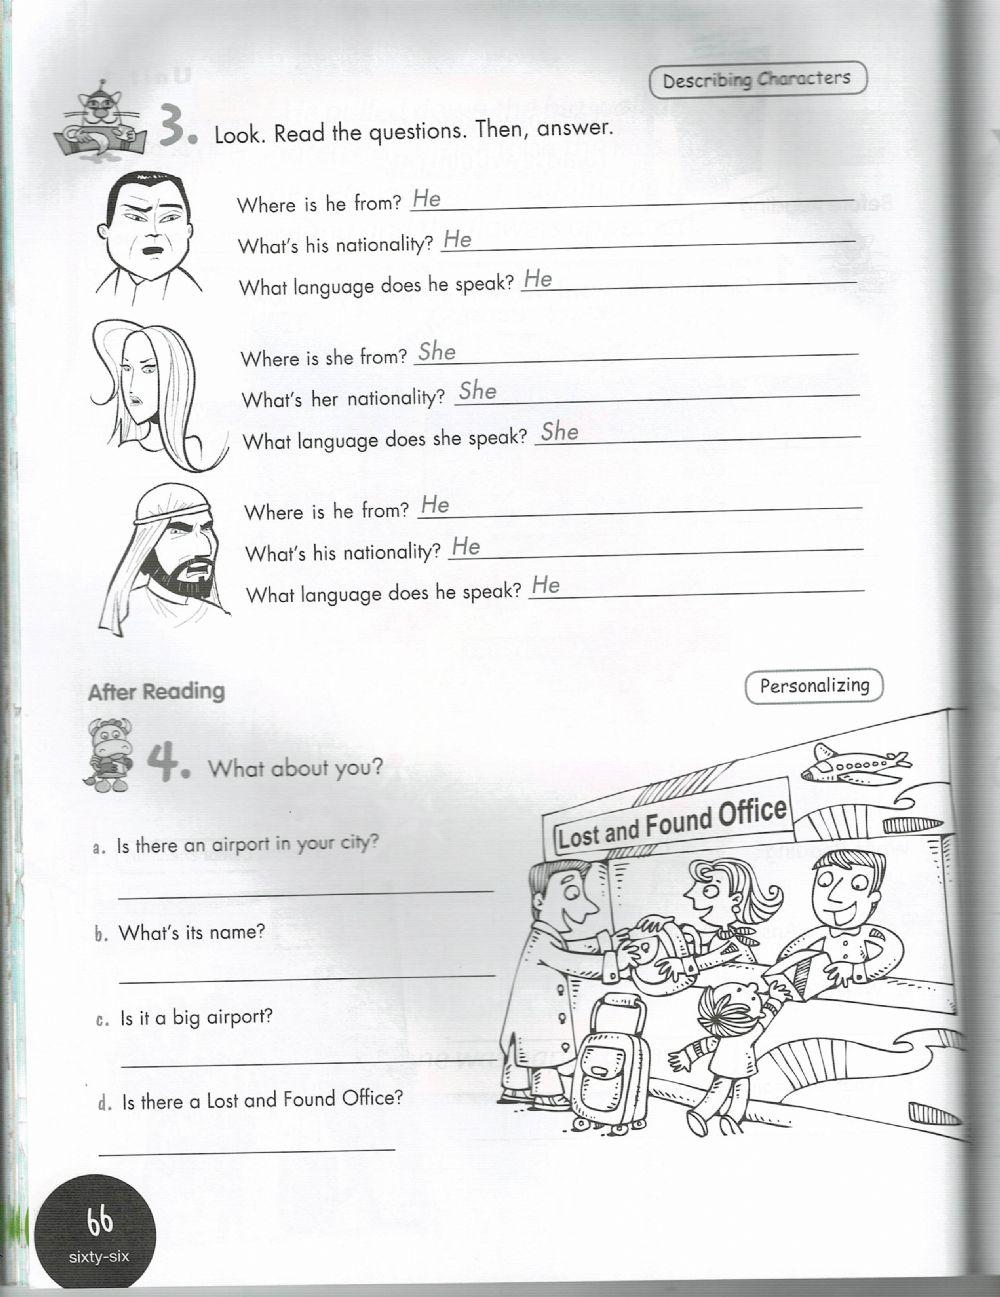 Describing Characters
3. Look. Read the questions. Then, answer.
Where is he from? He
What's his nationality? He
What language does he speak? He
Where is she from? She
What's her nationality? She
What language does she speak? She
Where is he from? He
What's his nationality? He
What language does he speak? He
After Reading
Personalizing
4. What about you?
Lost and Found Office
a. Is there an airport in your city?
b. What's its name?
c. Is it a big airport?
d. Is there a Lost and Found Office?
66
sixty-six